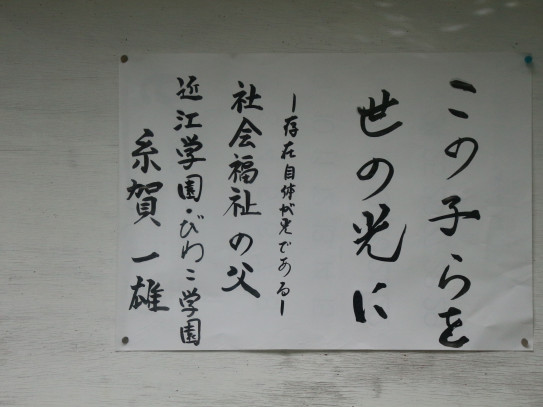 この子らを
世の光に
ー存在自体が光であるー
社会福祉の父
近江学園・びわこ学園
糸賀一雄